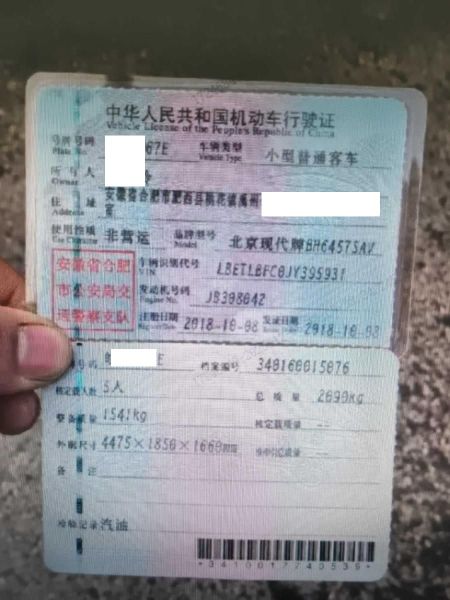 中华人民共和国机动车行驶证
Vehicle License of the People's Republic of China
号牌号码 67E 车辆类型 小型普通客车
Plate No. Vehicle Type
所有人
Owner
住址 安徽省合肥市肥西县桃花镇
Address 室
使用性质 非营运 品牌型号 北京现代牌BH6457SAV
Use Character Model
安徽省合肥
市公安局交
通警察支队
车辆识别代号 LBETLBFC0JY395931
VIN
发动机号码 JB398042
Engine No.
注册日期 2018-10-08 发证日期 2018-10-08
号码 E 档案编号 340160015076
核定载人数 5人 总质量
整备质量 1541kg 核定载质量 --
外廓尺寸 4475×1850×1660 --
备注
检验记录 汽油